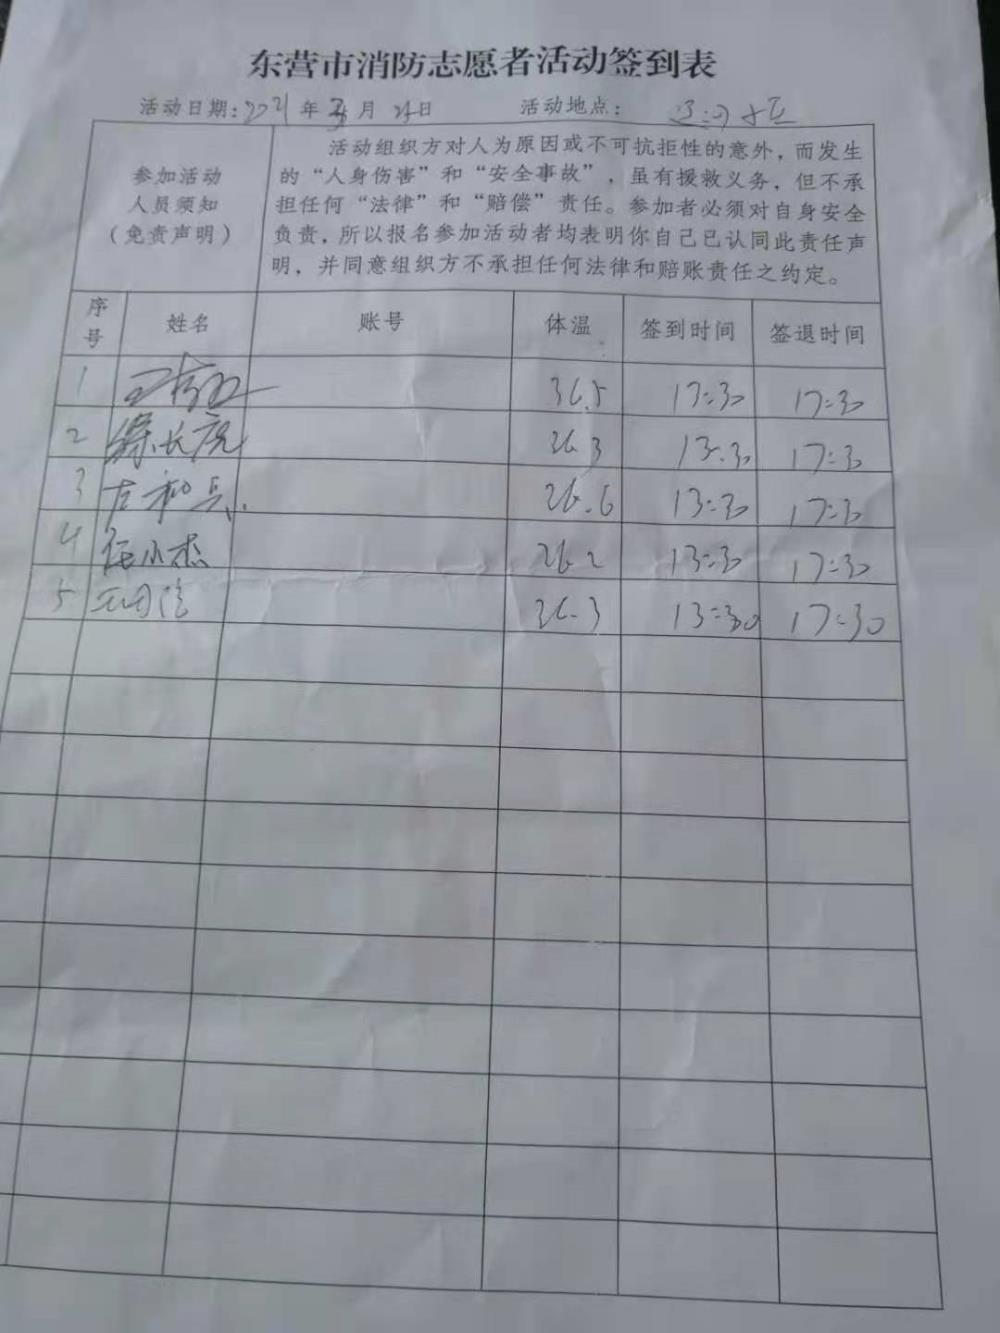 东营市消防志愿者活动签到表
活动日期:2021年 月 日 活动地点:
参加活动
人员须知
(免责声明)
活动组织方对人为原因或不可抗拒性的意外,而发生
的“人身伤害”和“安全事故”,虽有援救义务,但不承
担任何“法律”和“赔偿”责任。参加者必须对自身安全
负责,所以报名参加活动者均表明你自己已认同此责任声
明,并同意组织方不承担任何法律和赔账责任之约定。
序号 姓名 账号 体温 签到时间 签退时间
1 36.5 17:30 17:30
2 36.3 13:30 17:30
3 36.6 13:30 17:30
4 任小杰 36.2 13:30 17:30
5 36.3 13:30 17:30